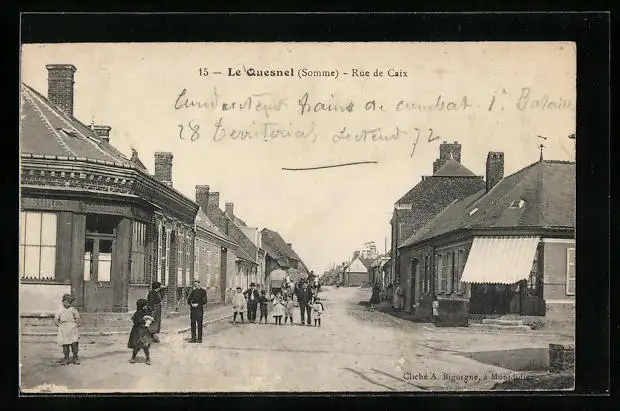 15 — Le Quesnel (Somme) - Rue de Caix
Conducteur trains de combat 1r Bataie
28 Territorial Secteur 72
Cliché A. Bigorgne, à Montdidier